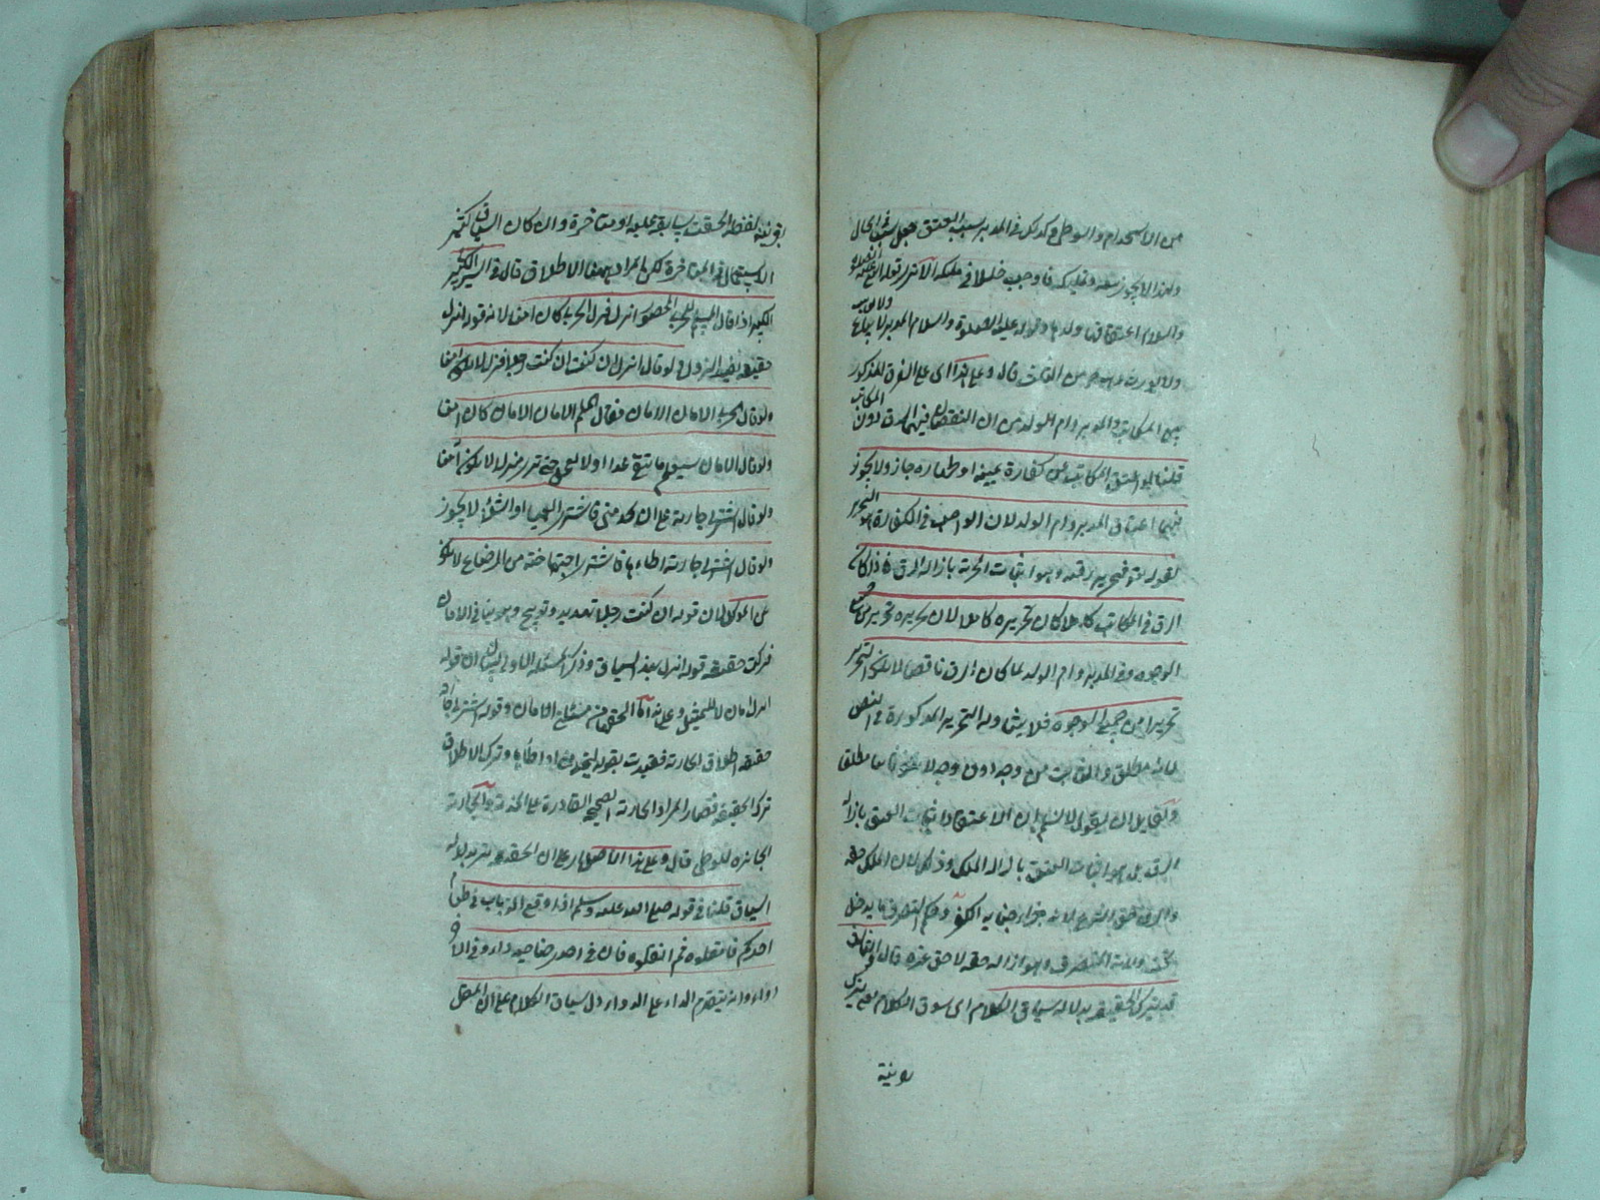 من الاستخدام والوطئ وكذلك في المدبر سبب العتق
ولهذا لا يجوز بيعه وتمليكه فاوجب خللا في ملكه
والسلام اعتقها ولدها وقوله عليه الصلوة والسلام المدبر لا يباع
ولا يورث وهو حر من الثلث قال وعلى هذا اى على الفرق المذكور
بين المكاتب والمدبر وام الولد من ان النقصان فيهما في الرق دون
المكاتب
قلنا اذا اعتق المكاتب عن كفارة يمينه او ظهاره جاز ولا يجوز
فيهما اعتاق المدبر وام الولد لان الواجب في الكفارة هو التحرير
لقوله تع فتحرير رقبة وهو اثبات الحرية بازالة الرق فاذا كان
الرق في المكاتب كاملا كان تحريره كاملا لان تحريره تحرير من جميع
الوجوه وفي المدبر وام الولد لما كان الرق ناقصا لا يكون التحرير
تحريرا من جميع الوجوه فلا يتناوله التحرير المذكورة في النص
لانه مطلق والثابت من وجه دون وجه لا يكون مطلق
ولقايل ان يقول لا نسلم ان الاعتاق اثبات العتق بازالة
الرق بل هو اثبات العتق بازالة الملك وذلك لان الملك حقه
والرق حق الشرع لانه جزاء جناية الكفر وحكم التصرف ما يدخل
تحت ولاية المتصرف وهو ازالة حقه لا حق غيره قال
قد يترك الحقيقة بدلالة سياق الكلام اى سوق الكلام
قرينة
قرينة لفظية التحقت سابقة عليه او متاخرة وان كان السياق كثير
الاستعمال في المتاخرة لكن المراد بهما الاطلاق قال في السير الكبير
اذا قال المسلم للحربى المحصور انزل فنزل الحربى كان امنا لان قوله انزل
حقيقة لطلب النزول ولو قال انزل ان كنت رجلا فنزل لا يكون امنا
ولو قال الحربى الامان الامان فقال المسلم الامان الامان كان امنا
ولو قال الامان ستعلم ما تلقى غدا او لا تعجل حتى ترى فنزل لا يكون آمنا
ولو قال اشتر لى جارية على ان تخدمنى فاشترى العمياء او الشلاء لا يجوز
ولو قال اشتر لى جارية اطاءها فاشترى اختها اخته من الرضاع لا يكون
عن الموكل لان قوله ان كنت رجلا تهديد وتوبيخ وهو ينافى الامان
فتركت حقيقة قوله انزل بهذا السياق وذكر المسئلة الاولى لبيان ان قوله
انزل امان لا للتمثيل
حقيقة اطلاق الجارية فقيدت بقوله تخدمنى او اطاءها وترك الاطلاق
ترك الحقيقة فصار المراد الجارية الصحيحة القادرة على الخدمة والجارية
الجائزة للوطى قال وعلى هذا الاصل اى على ان الحقيقة تترك بدلالة
السياق قلنا في قوله صلى الله عليه وسلم اذا وقع الذباب في طعام
احدكم فامقلوه ثم انقلوه فان في احدى جناحيه داء وفي الاخرى
دواء وانه ليقدم الداء على الدواء دل سياق الكلام على ان المقل